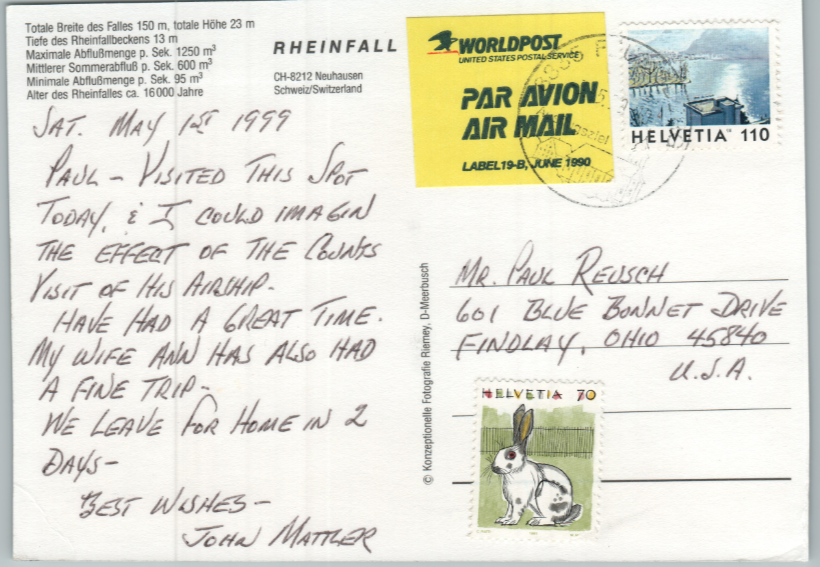 Totale Breite des Falles 150 m, totale Höhe 23 m
Tiefe des Rheinfallbeckens 13 m
Maximale Abflußmenge p. Sek. 1250 m³
Mittlerer Sommerabfluß p. Sek. 600 m³
Minimale Abflußmenge p. Sek. 95 m³
Alter des Rheinfalles ca. 16000 Jahre
RHEINFALL
CH-8212 Neuhausen
Schweiz/Switzerland
WORLDPOST
UNITED STATES POSTAL SERVICE
PAR AVION
AIR MAIL
LABEL 19-B, JUNE 1990
HELVETIA 110
SAT. MAY 1ST 1999
PAUL - VISITED THIS SPOT
TODAY, & I COULD IMAGIN
THE EFFECT OF THE COUNTS
VISIT OF HIS AIRSHIP-
HAVE HAD A GREAT TIME.
MY WIFE ANN HAS ALSO HAD
A FINE TRIP-
WE LEAVE FOR HOME IN 2
DAYS-
BEST WISHES-
JOHN MATTLER
© Konzeptionelle Fotografie Riemey, D-Meerbusch
MR. PAUL REUSCH
601 BLUE BONNET DRIVE
FINDLAY, OHIO 45840
U.S.A.
HELVETIA 70